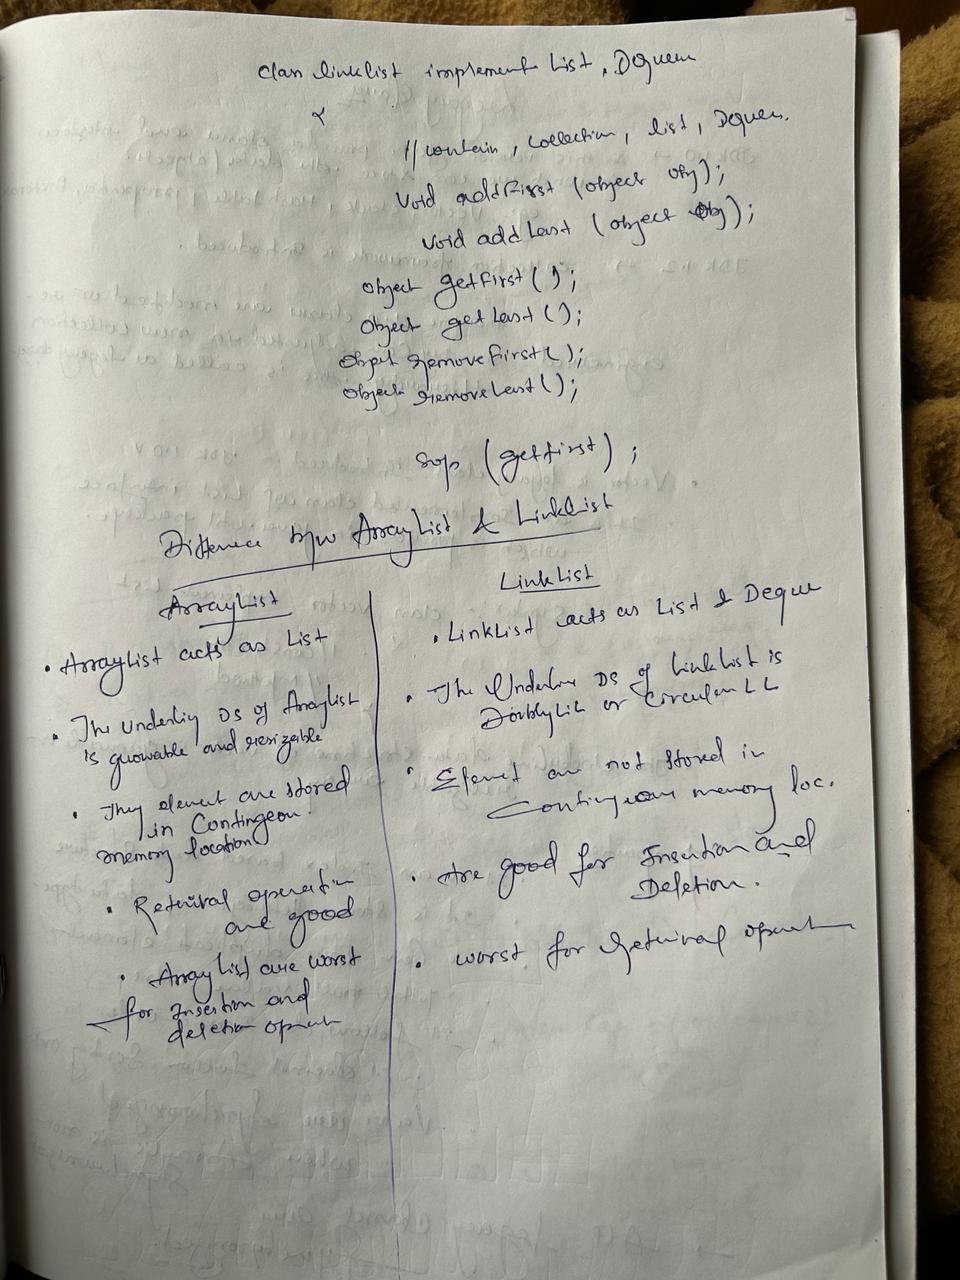 clan linklist implement List, Dequeu
{
// contain, Collection, list, Dequeu.
Void addFirst (object obj);
Void add Last (object obj);
object getFirst ( );
Object get Last ( );
Object removeFirst( );
object removeLast ( );
Sop (getfirst) ;
Difference b/w ArrayList & LinkList
ArrayList
• ArrayList acts as List
• The underliy DS of ArrayList
is growable and resizeable
• They element are stored
in Contingeou.
memory location
• Retrival operation
are good
• ArrayList are worst
for Insertion and
deletion operat
LinkList
• LinkList acts as List & Deque
• The Underline DS of LinkList is
DoublyLL or Circular LL
• Elemet are not stored in
Contingeous memory loc.
• Are good for Insertion and
Deletion.
• worst for retrival operat